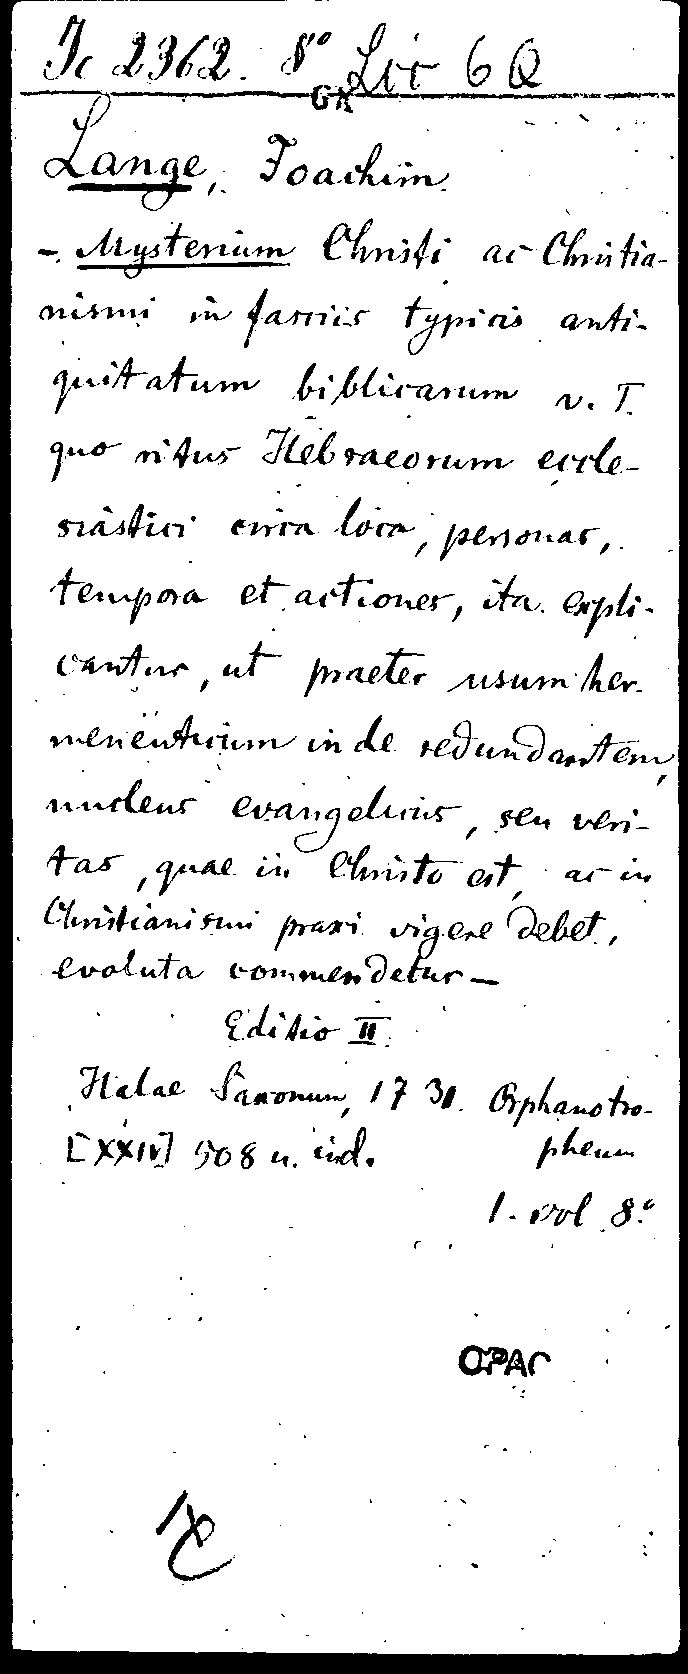 Jc 2362. 8° Lit 6 Q
GK
Lange, Joachim.
-. Mysterium Christi ac Christia-
nismi in fasciis typicis anti-
quitatum biblicarum v. T.
quo ritus Hebraeorum eccle-
siastici circa loca, personas,
tempora et actiones, ita expli-
cantur, ut praeter usum her-
meneuticum inde redundantem,
nucleus evangelicus, seu veri-
tas, quae in Christo est, ac in
Christianismi praxi vigere debet,
evoluta commendetur —
Editio II.
Halae Saxonum, 1731. Orphanotro-
pheum
[XXIV] 508 u. ind.
1. vol 8.°
OPAC